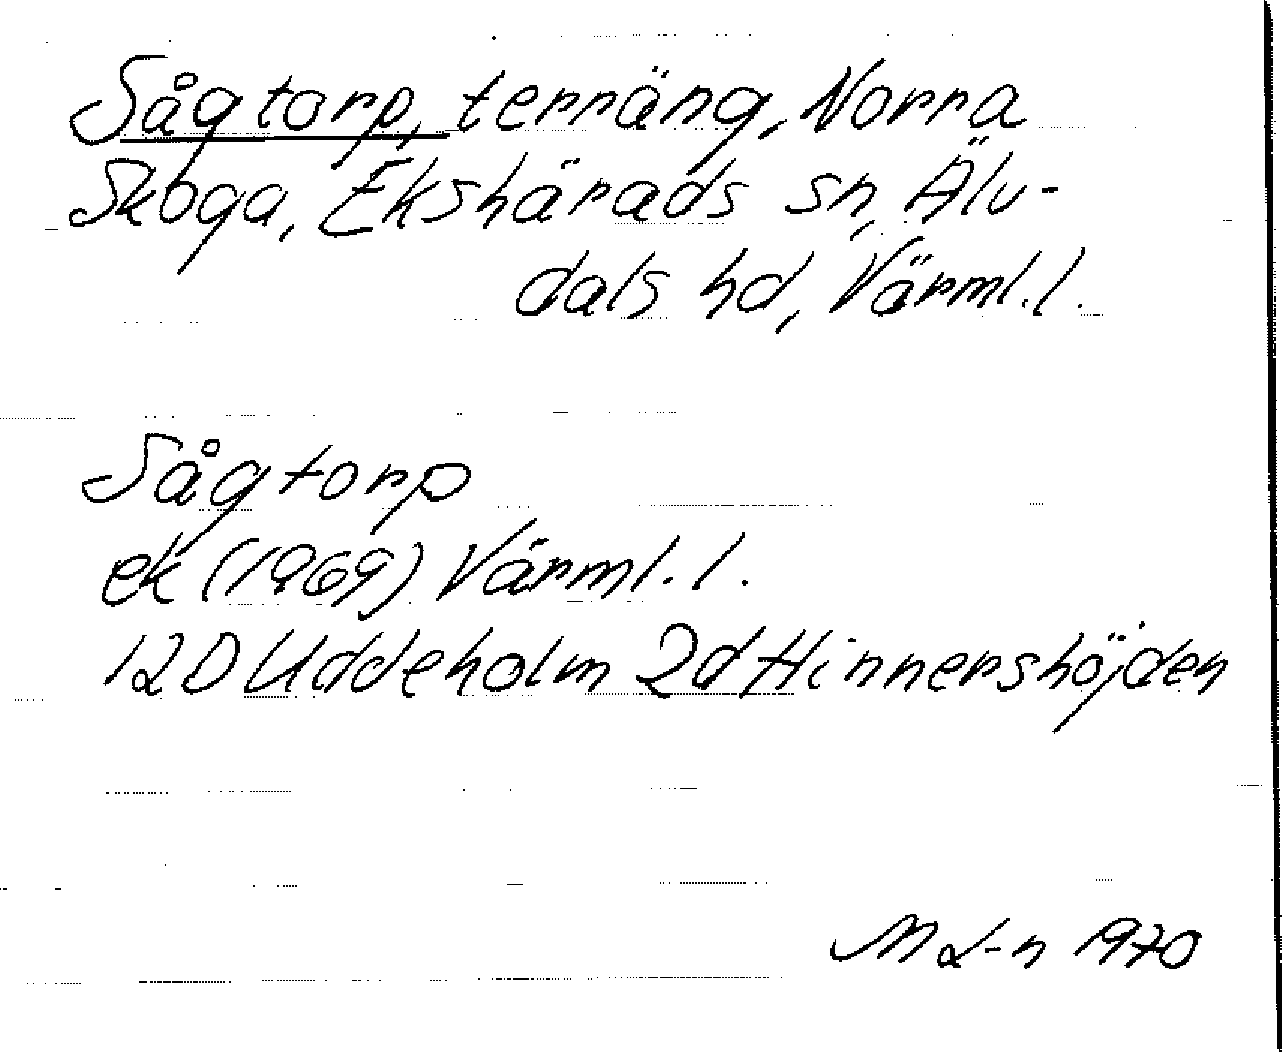 Sågtorp, terräng, Norra
Skoga, Ekshärads sn, Älv-
dals hd, Värml. l.
Sågtorp
ek (1969) Värml. l.
12D Uddeholm 2d Hinnershöjden
M L-n 1970